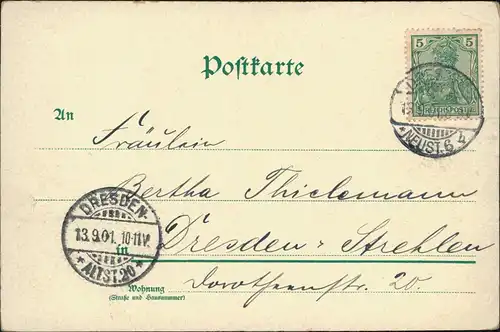 5 5
REICHSPOST
Postkarte
NEUST. 6
An
Fräulein
Bertha Thielemann
DRESDEN-
13.9.01. 10-11V.
* ALTST.20 *
in Dresden-Strehlen
Dorotheenstr. 20
Wohnung
(Straße und Hausnummer)